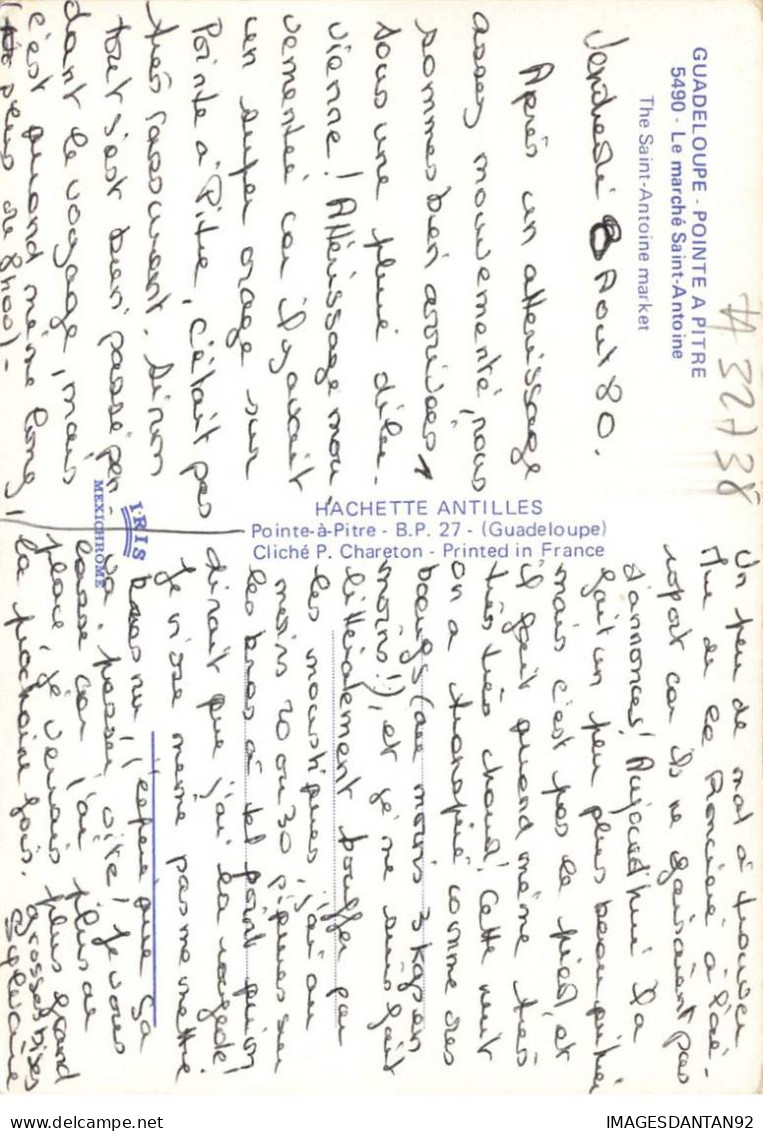 GUADELOUPE - POINTE A PITRE
5490 - Le marché Saint-Antoine
The Saint-Antoine market
Vendredi 8 Aout 80.
Après un atterrissage
assez mouvementé, nous
sommes bien arrivées
sous une pluie dilu-
vienne ! Atterrissage mou-
vementé car il y avait
un super orage sur
Pointe à Pitre, c'était pas
très rassurant. Sinon
tout s'est bien passé pen-
dant le voyage, mais
c'est quand même long,
(plus de 8h00) -
HACHETTE ANTILLES
Pointe-à-Pitre - B.P. 27 - (Guadeloupe)
Cliché P. Chareton - Printed in France
IRIS
MEXICHROME
Un peu de mal à trouver
Mme de la Roncière à l'aé-
roport car ils ne faisaient pas
d'annonces ! Aujourd'hui il a
fait un peu plus beau
mais c'est pas le pied, et
il fait quand même très
très très chaud. Cette nuit
on a transpiré comme des
bœufs (au moins 3 kgs en
moins !), et je me suis fait
littéralement bouffer par
les moustiques, j'ai au
moins 20 ou 30 piqûres sur
les bras à tel point qu'on
dirait que j'ai la rougeole !
Je n'ose même pas me mettre
bras nu, j'espère que ça
va passer vite ! Je vous
laisse car j'ai plus de
place, je verrais plus grand
la prochaine fois. grosses bises
Sylvaine
# 32738
IMAGESDANTAN92